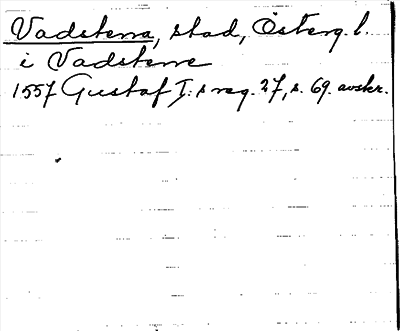 Vadstena, stad, Österg. l.
i Vadstene
1557 Gustaf I:s reg. 27, s. 69. avskr.